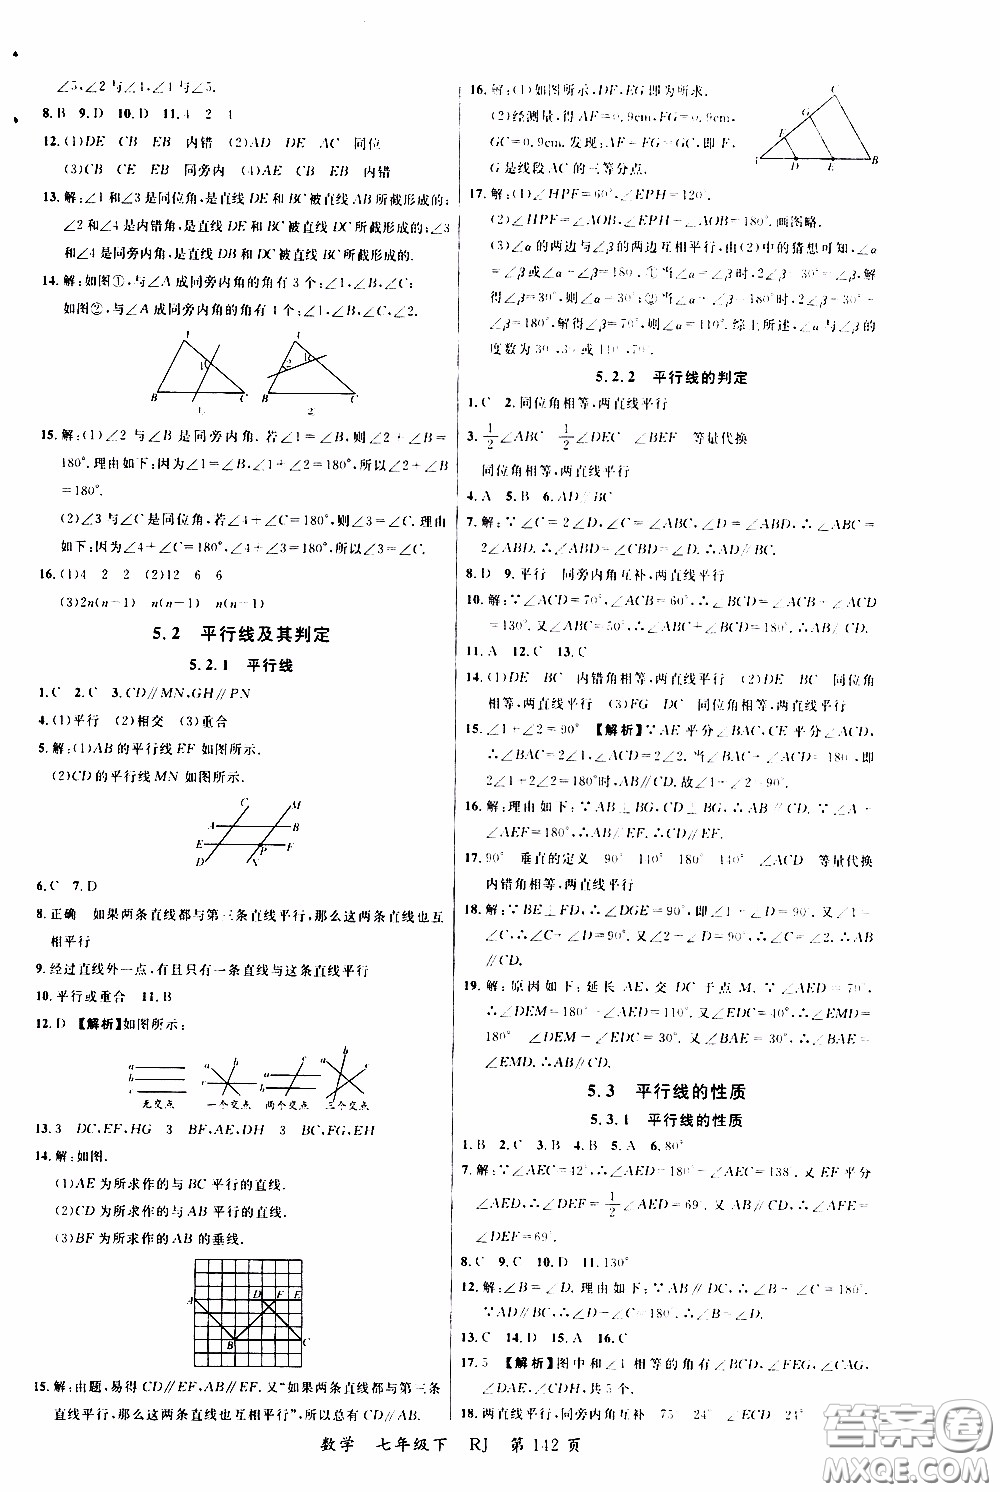 ∠5,∠2与∠4,∠4与∠5.
8.B 9.D 10.D 11.4 2 1
12.(1)DE CB EB 内错 (2)AD DE AC 同位
(3)CB CE EB 同旁内 (4)AC EB EB 内错
13.解:∠1和∠3是同位角,是直线DE和BC被直线AB所截形成的;
∠2和∠4是内错角,是直线DE和BC被直线DC所截形成的;∠3
和∠4是同旁内角,是直线DB和DC被直线BC所截形成的.
14.解:如图①,与∠A成同旁内角的角有3个:∠1,∠B,∠C;
如图②,与∠A成同旁内角的角有4个:∠1,∠B,∠C,∠2.
A A
B C B C
1 2
15.解:(1)∠2与∠B是同旁内角.若∠1=∠B,则∠2+∠B=
180°.理由如下:因为∠1=∠B,∠1+∠2=180°,所以∠2+∠B
=180°.
(2)∠3与∠C是同位角,若∠4+∠C=180°,则∠3=∠C.理由
如下:因为∠4+∠C=180°,∠4+∠3=180°,所以∠3=∠C.
16.(1)4 2 2 (2)12 6 6
(3)2n(n-1) n(n-1) n(n-1)
5.2 平行线及其判定
5.2.1 平行线
1.C 2.C 3.CD∥MN,GH∥PN
4.(1)平行 (2)相交 (3)重合
5.解:(1)AB的平行线EF如图所示.
(2)CD的平行线MN如图所示.
C M
A B
E P F
D N
6.C 7.D
8.正确 如果两条直线都与第三条直线平行,那么这两条直线也互
相平行
9.经过直线外一点,有且只有一条直线与这条直线平行
10.平行或重合 11.B
12.D 【解析】如图所示:
a b c a b c a b c a b c
无交点 一个交点 两个交点 三个交点
13.3 DC,EF,HG 3 BF,AE,DH 3 BC,FG,EH
14.解:如图.
(1)AE为所求作的与BC平行的直线.
(2)CD为所求作的与AB平行的直线.
(3)BF为所求作的AB的垂线.
A D F E
B C
15.解:由题,易得CD∥EF,AB∥EF.又“如果两条直线都与第三条
直线平行,那么这两条直线也互相平行”,所以总有CD∥AB.
16.解:(1)如图所示,DF,EG即为所求.
(2)经测量,得AF=0.9cm,FG=0.9cm,
GC=0.9cm.发现:AF=FG=GC,即F,
G是线段AC的三等分点.
C
G
F
A D E B
17.解:(1)∠HPF=60°,∠EPH=120°.
(2)∠HPF=∠AOB,∠EPH+∠AOB=180°.画图略.
(3)∠α的两边与∠β的两边互相平行,由(2)中的猜想可知,∠α
=∠β或∠α+∠β=180°.①当∠α=∠β时,2∠β-30°=∠β,解
得∠β=30°,所以∠α=30°;②当∠α+∠β=180°时,2∠β-30°+
∠β=180°,解得∠β=70°,则∠α=110°.综上所述,∠α与∠β的
度数为30°,30°或110°,70°.
5.2.2 平行线的判定
1.C 2.同位角相等,两直线平行
3.1/2∠ABC 1/2∠DEC ∠BEF 等量代换
同位角相等,两直线平行
4.A 5.B 6.AD∥BC
7.解:∵∠C=2∠D,∠C=∠ABC,∠D=∠ABD,∴∠ABC=
2∠ABD.∴∠ABD=∠DBC.又∠D=∠ABD,∴∠D=∠DBC.∴AD∥BC.
8.D 9.平行 同旁内角互补,两直线平行
10.解:∵∠ACD=70°,∠ACB=60°,∴∠BCD=∠ACD+∠ACB
=130°.又∠ABC=50°,∴∠ABC+∠BCD=180°.∴AB∥CD.
11.A 12.C 13.C
14.(1)DE BC 内错角相等,两直线平行 (2)DE BC 同位角
相等,两直线平行 (3)FG DC 同位角相等,两直线平行
15.∠1+∠2=90° 【解析】∵AE平分∠BAC,CE平分∠ACD,
∴∠BAC=2∠1,∠ACD=2∠2.当∠BAC+∠ACD=180°,即
2∠1+2∠2=180°时,AB∥CD.故∠1+∠2=90°.
16.解:理由如下:∵AB⊥BG,CD⊥BG,∴AB∥CD.∵∠A+
∠AEF=180°,∴AB∥EF.∴CD∥EF.
17.90° 垂直的定义 90° 140° 180° 140° ∠ACD 等量代换
内错角相等,两直线平行
18.解:∵BE⊥FD,∴∠DGE=90°,即∠1+∠D=90°.又∠2+
∠D=90°,∴∠1=∠2.又∠C=∠1,∴∠C=∠2.
∴AB∥CD.
19.解:原因如下:延长AE,交DC于点M.∵∠AED=70°,
∴∠DEM=180°-∠AED=110°.又∠EDC=40°,∴∠EMD=
180°-∠DEM-∠EDC=30°.又∠BAE=30°,∴∠BAE=
∠EMD.∴AB∥CD.
5.3 平行线的性质
5.3.1 平行线的性质
1.B 2.C 3.C 4.B 5.A 6.80°
7.解:∵∠AEC=42°,∴∠AED=180°-∠AEC=138°.又EF平分
∠AED,∴∠DEF=1/2∠AED=69°.又AB∥CD,∴∠AFE=
∠DEF=69°.
8.C 9.C 10.D 11.130°
12.解:∠B=∠D.理由如下:∵AB∥DC,∴∠B+∠C=180°.
∵AD∥BC,∴∠D+∠C=180°.∴∠B=∠D.
13.C 14.D 15.A 16.C
17.5 【解析】图中和∠1相等的角有∠BCA,∠FEG,∠CAG,
∠DAE,∠DEH,共5个.
18.两直线平行,同旁内角互补 75 24° ∠ECD 24°
数学 七年级下 RJ 第142页
答案圈
MXQE.COM